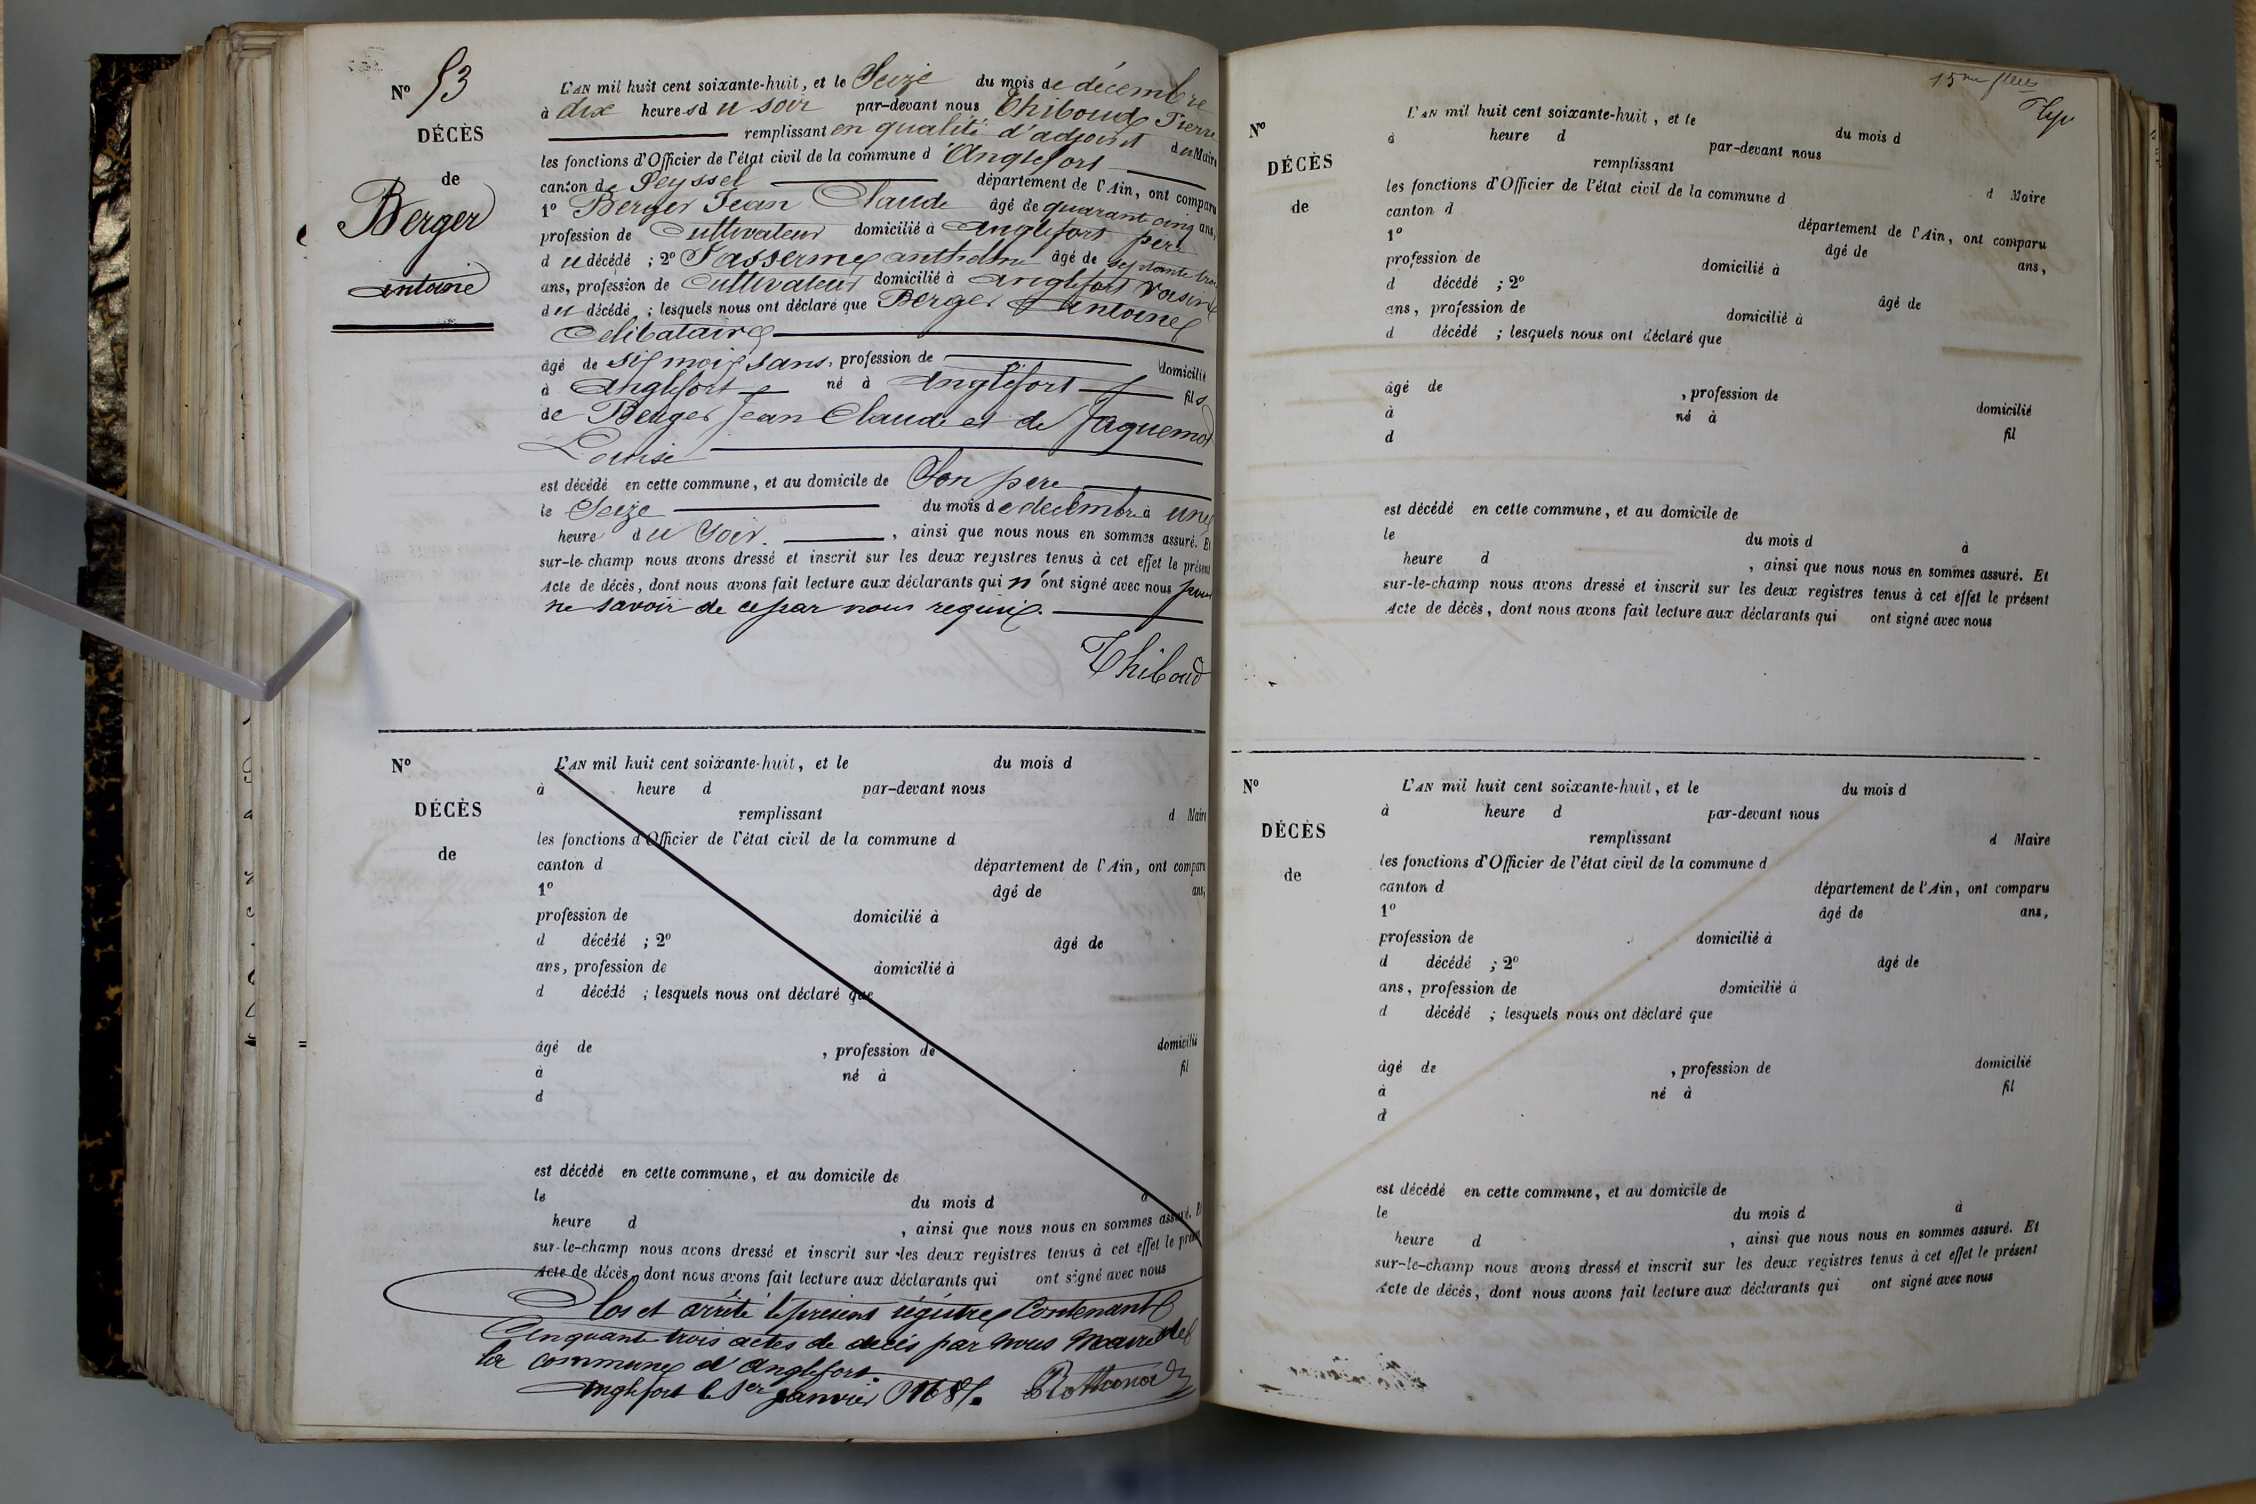 N° 53
DÉCÈS
de
Berger
Antoine
L'AN mil huit cent soixante-huit, et le Seize du mois de décembre
à dix heures du soir par-devant nous Thiboud Pierre
remplissant en qualité d'adjoint du Maire
les fonctions d'Officier de l'état civil de la commune d'Anglefort
canton de Seyssel département de l'Ain, ont comparu
1° Berger Jean Claude âgé de quarante cinq ans,
profession de Cultivateur domicilié à Anglefort père
du décédé ; 2° anthelme âgé de septante trois
ans, profession de Cultivateur domicilié à Anglefort voisin
du décédé ; lesquels nous ont déclaré que Berger Antoine
Celibataire
âgé de six mois sans, profession de domicilié
à Anglefort né à Anglefort fils
de Berger Jean Claude et de Jaquemod
Louise
est décédé en cette commune, et au domicile de Son pere
le Seize du mois de decembre à une
heure du Soir. , ainsi que nous nous en sommes assuré. Et
sur-le-champ nous avons dressé et inscrit sur les deux registres tenus à cet effet le présent
Acte de décès, dont nous avons fait lecture aux déclarants qui n'ont signé avec nous pour
ne savoir de ce par nous requis.
Thiboud
N°
DÉCÈS
de
L'AN mil huit cent soixante-huit, et le du mois d
à heure d par-devant nous
remplissant d Maire
les fonctions d'Officier de l'état civil de la commune d
canton d département de l'Ain, ont comparu
1° âgé de ans,
profession de domicilié à
d décédé ; 2° âgé de
ans, profession de domicilié à
d décédé ; lesquels nous ont déclaré que
âgé de , profession de domicilié
à né à fil
d
est décédé en cette commune, et au domicile de
le du mois d à
heure d , ainsi que nous nous en sommes assuré. Et
sur-le-champ nous avons dressé et inscrit sur les deux registres tenus à cet effet le présent
Acte de décès, dont nous avons fait lecture aux déclarants qui ont signé avec nous
Clos et arrêté le présent régistre Contenant
Cinquante trois actes de décès par nous Maire de
la commune d'Anglefort.
Anglefort le 1er Janvier
15me
N°
DÉCÈS
de
L'AN mil huit cent soixante-huit, et le du mois d
à heure d par-devant nous
remplissant d Maire
les fonctions d'Officier de l'état civil de la commune d
canton d département de l'Ain, ont comparu
1° âgé de ans,
profession de domicilié à
d décédé ; 2° âgé de
ans, profession de domicilié à
d décédé ; lesquels nous ont déclaré que
âgé de , profession de domicilié
à né à fil
d
est décédé en cette commune, et au domicile de
le du mois d à
heure d , ainsi que nous nous en sommes assuré. Et
sur-le-champ nous avons dressé et inscrit sur les deux registres tenus à cet effet le présent
Acte de décès, dont nous avons fait lecture aux déclarants qui ont signé avec nous
N°
DÉCÈS
de
L'AN mil huit cent soixante-huit, et le du mois d
à heure d par-devant nous
remplissant d Maire
les fonctions d'Officier de l'état civil de la commune d
canton d département de l'Ain, ont comparu
1° âgé de ans,
profession de domicilié à
d décédé ; 2° âgé de
ans, profession de domicilié à
d décédé ; lesquels nous ont déclaré que
âgé de , profession de domicilié
à né à fil
d
est décédé en cette commune, et au domicile de
le du mois d à
heure d , ainsi que nous nous en sommes assuré. Et
sur-le-champ nous avons dressé et inscrit sur les deux registres tenus à cet effet le présent
Acte de décès, dont nous avons fait lecture aux déclarants qui ont signé avec nous